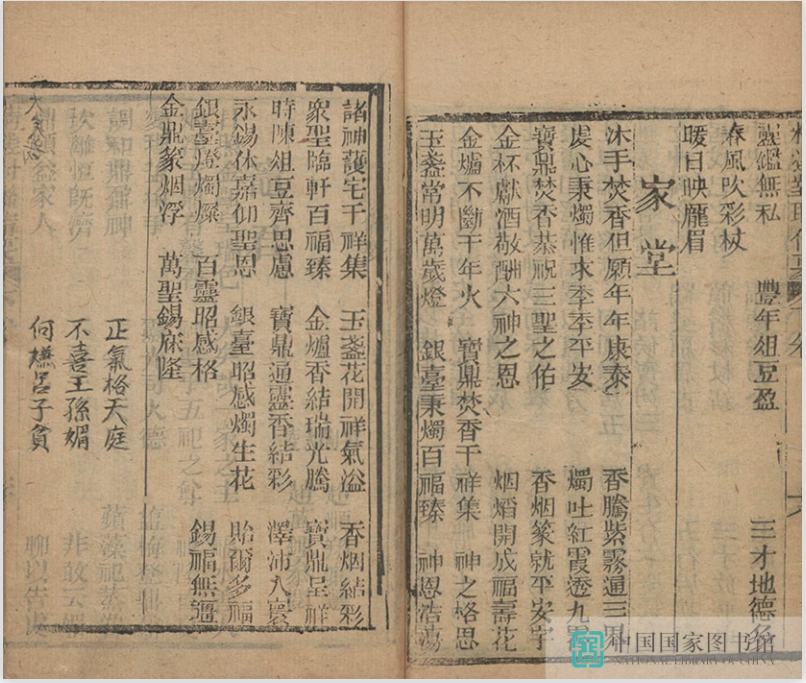 靈鑑無私 豐年俎豆盈 三才地德
春風吹彩杖
暖日映龎眉
家堂
沐手焚香但願年年康泰 香騰紫霧通三界
虔心秉燭惟求季季平安 燭吐紅霞透九霄
寶鼎焚香恭祝三聖之佑 香烟篆就平安字
金杯獻酒敬酬六神之恩 烟熖開成福壽花
金爐不斷千年火 寶鼎焚香千祥集 神之格思
玉盞常明萬歲燈 銀臺秉燭百福臻 神恩浩蕩
諸神護宅千祥集 玉盞花開祥氣溢 香烟結彩
衆聖臨軒百福臻 金爐香結瑞光騰 寳鼎呈祥
時陳俎豆齊思慮 寶鼎通靈香結彩 澤沛八寰
永錫休嘉仰聖恩 銀臺昭感燭生花 貽爾多福
銀臺燈燭燦 百靈昭感格 錫福無疆
金鼎篆烟浮 萬聖錫庥隆
正氣格天庭
不喜王孫媚
何嫌呂子貧
中国国家图书馆
NATIONAL LIBRARY OF CHINA